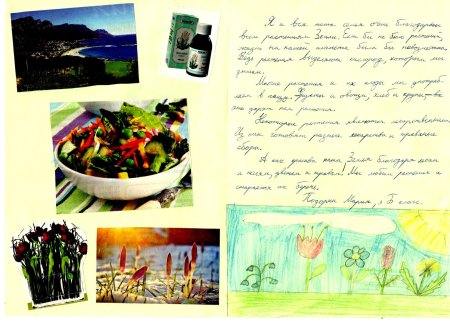 Я и вся наша семья очень благодарны
всем растениям Земли. Если бы не было растений,
жизнь на нашей планете была бы невозможна.
Ведь растения выделяют кислород, которым мы
дышим.
Многие растения и их плоды мы употреб-
ляем в пищу. Фрукты и овощи, хлеб и крупы - всё
это дарят нам растения.
Некоторые растения являются лекарственными.
Из них готовят разные лекарства и травяные
сборы.
А как красива наша Земля благодаря лесам
и полям, цветам и травам! Мы любим растения и
стараемся их беречь.
Мария, 3 Б класс.